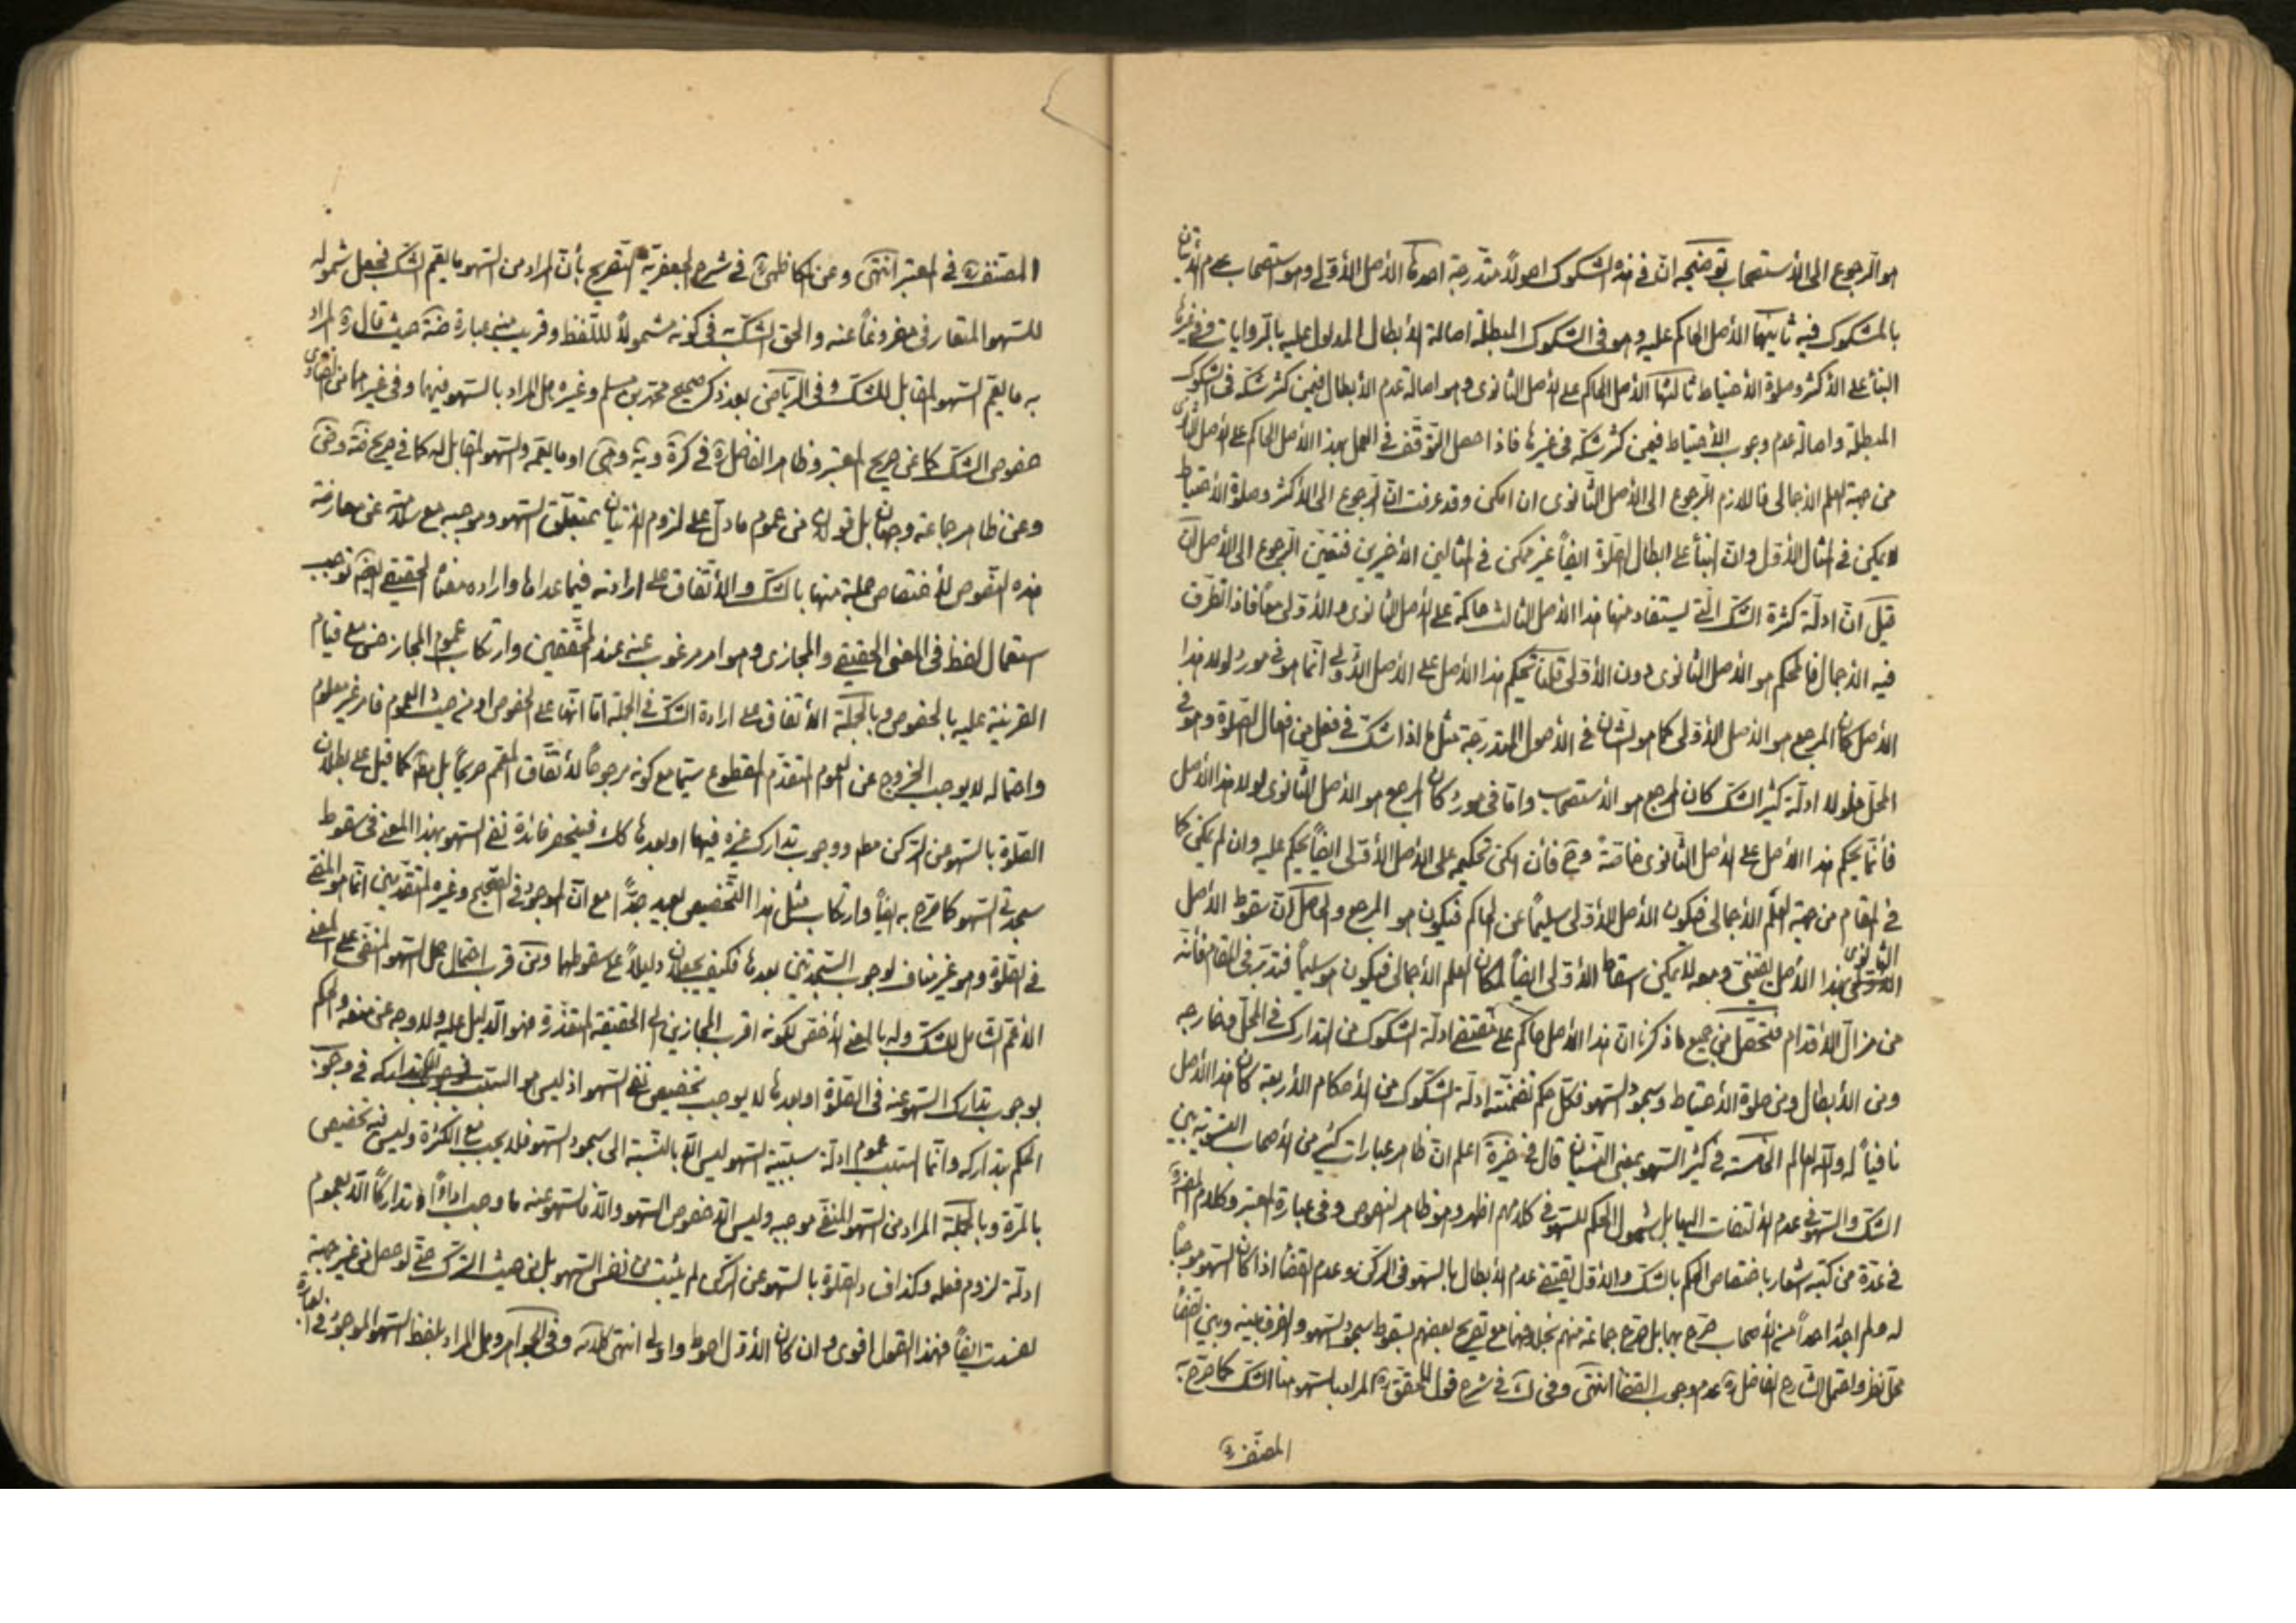 هو الرجوع الى الأستصحاب توضيحه انّ فى هذه الشكوك اصولاً متدرجة احدها الأصل الأوّلى وهو استصحاب عدم الأتيان
بالمشكوك فيه ثانيها الأصل الحاكم عليه وهو فى الشكوك المبطلة اصالة الأبطال المدلول عليه بالروايات وفى غيرها
البناء على الأكثر وصلوة الأحتياط ثالثها الأصل الحاكم على الأصل الثانوى وهو اصالة عدم الأبطال فيمن كثر شكّه فى الشكوك
المبطلة واصالة عدم وجوب الأحتياط فيمن كثر شكّه فى غيرها فاذا حصل التوقّف فى العمل بهذا الأصل الحاكم على الأصل الثانوى
من جهة العلم الأجمالى فاللازم الرجوع الى الأصل الثانوى ان امكن وقد عرفت انّ الرجوع الى الأكثر وصلوة الأحتياط
لا يمكن فى المثال الأوّل وانّ البناء على ابطال الصلوة ايضاً غير ممكن فى المثالين الأخيرين فتعيّن الرجوع الى الأصل
قيل انّ ادلّة كثرة الشكّ الّتى يستفاد منها هذا الأصل الثالث حاكمة على الأصل الثانوى والأوّلى معاً فاذا تطرّق
فيه الأجمال فالمحكم هو الأصل الثانوى دون الأوّلى قلنا تحكيم هذا الأصل على الأصل الأوّلى انّما هو فى مورد لولا هذا
الأصل كان المرجع هو الأصل الأوّلى كما هو الشأن فى الأصول المتدرجة مثل ما اذا شكّ فى فعل من افعال الصلوة وهو فى
المحلّ فلولا ادلّة كثير الشكّ كان المرجع هو الأستصحاب وامّا فى مورد كان المرجع هو الأصل الثانوى لولا هذا الأصل
فأنّما يحكم هذا الأصل على الأصل الثانوى خاصّة وح فأن امكن تحكيمه على الأصل الأوّلى ايضاً يحكم عليه وان لم يمكن كما
فى المقام من جهة العلم الأجمالى فيكون الأصل الأوّلى سليماً عن الحاكم فيكون هو المرجع والحاصل انّ سقوط الأصل
الثانوى بهذا الأصل يقينى ومعه لا يمكن اسقاط الأوّلى ايضاً لمكان العلم الأجمالى فيكون هو سليماً فتدبّر فى المقام فأنّه
من مزالّ الأقدام فتحصّل من جميع ما ذكرنا انّ هذا الأصل حاكم على مقتضى ادلّة الشكوك من التدارك فى المحلّ وخارجه
ومن الأبطال ومن صلوة الأحتياط وسجود السهو فكلّ حكم تضمّنته ادلّة الشكوك من الأحكام الأربعة كان هذا الأصل
نافياً له واللّه العالم الخامسة فى كثير السهو بمعنى النسيان قال فى خيرة اعلم انّ ظاهر عبارات كثير من الأصحاب التسوية بين
الشكّ والسهو فى عدم الألتفات اليها بل شمول الحكم للسهو فى كلامهم اظهر وهو ظاهر النصوص وفى عبارة المعتبر وكلام المصنف
فى عدّة من كتبه اشعار باختصاص الحكم بالشكّ والأوّل يقتضى عدم الأبطال بالسهو فى الركن وعدم القضاء اذا كان السهو موجباً
له ولم اجد احداً من الأصحاب صرّح بهما بل صرّح جماعة منهم بخلافهما مع تصريح بعضهم بسقوط سجود السهو والفرق بينه وبين القضاء
محلّ نظر واحتمل الشارح الفاضل ره عدم وجوب القضاء انتهى وفى ك فى شرح قول المحقق ره المراد بالسهو هنا الشكّ كما صرّح به
المصنف ره
المصنف ره فى المعتبر انتهى وعن الكاظمى فى شرح الجعفرية التصريح بأنّ المراد من السهو ما يعمّ الشكّ فجعل شموله
للسهو المتعارف مفروغاً عنه والحق الشكّ به فى كونه مشمولاً للّفظ وقريب منه عبارة ضة حيث قال ره المراد
به ما يعمّ السهو المقابل للشكّ وفى الرياض بعد ذكر صحيح محمّد بن مسلم وغيره هل المراد بالسهو فيهما وفى غيرهما من الفتاوى
خصوص الشكّ كما عن صريح المعتبر وظاهر الفاضل ره فى كرة و ية و هى او ما يعمّه والسهو المقابل له كما فى صريح ضة وض
وعن ظاهر جماعة وجهان بل قولان من عموم ما دلّ على لزوم الأتيان بمتعلّق السهو وموجبه مع سلامته عن معارضة
هذه النصوص لأختصاص جملة منها بالشكّ والأتّفاق على ارادته فيما عداها وارادة معناه الحقيقى ايضاً توجب
استعمال اللفظ فى المعنى الحقيقى والمجازى وهو امر مرغوب عنه عند المحققين وارتكاب عموم المجاز حسن مع قيام
القرينة عليه بالخصوص وبالجملة الأتّفاق على ارادة الشكّ فى الجملة امّا انّها على الخصوص او من حيث العموم فأمر غير معلوم
واحتماله لا يوجب الخروج عن العموم المتقدّم المقطوع سيّما مع كونه مرجوحاً لأتّفاق المعمّم صريحاً بل مط كما قيل على بطلان
الصلوة بالسهو من الركن مط ووجوب تدارك غيره فيها او بعدها كك فينحصر فائدة نفى السهو بهذا المعنى فى سقوط
سجدتى السهو كما صرّح به ايضاً وارتكاب مثل هذا التخصيص بعيد جدّاً مع انّ الموجود فى الصحيح وغيره المتقدمين انّما هو المضى
فى الصلوة وهو غير مناف لوجوب السجدتين بعدها فكيف يجعلان دليلاً على سقوطهما ومن قرب احتمال حمل السهو المنفى على المعنى
الأعمّ الشامل للشكّ وله بالمعنى الأخصّ لكونه اقرب المجازين الى الحقيقة المتعذّرة فهو الدليل عليه ولا وجه عن منعه والحكم
بوجوب تدارك السهو عنه فى الصلوة او بعدها لا يوجب تخصيص نفى السهو اذ ليس هو السبب فى وجوب تداركه فى وجوب
الحكم بتداركه وانّما السبب عموم ادلّة سببيّة السهو ليس الّا بالنسبة الى سجود السهو فلا يجب مع الكثرة وليس فيه تخصيص
بالمرّة وبالجملة المراد من السهو المنفى موجبه وليس الّا خصوص السهو والّا فالسهو عنه ما وجب اداءً او تداركاً الّا بعموم
ادلّة لزوم فعله وكذا فساد الصلوة بالسهو عن الركن لم يثبت من نفس السهو بل من حيث الترك حتّى لو حصل من غير جهته
لفسدت ايضاً فهذا القول اقوى وان كان الأوّل احوط واولى انتهى كلامه وفى الجواهر وهل المراد بلفظ السهو الموجود فى العبارة